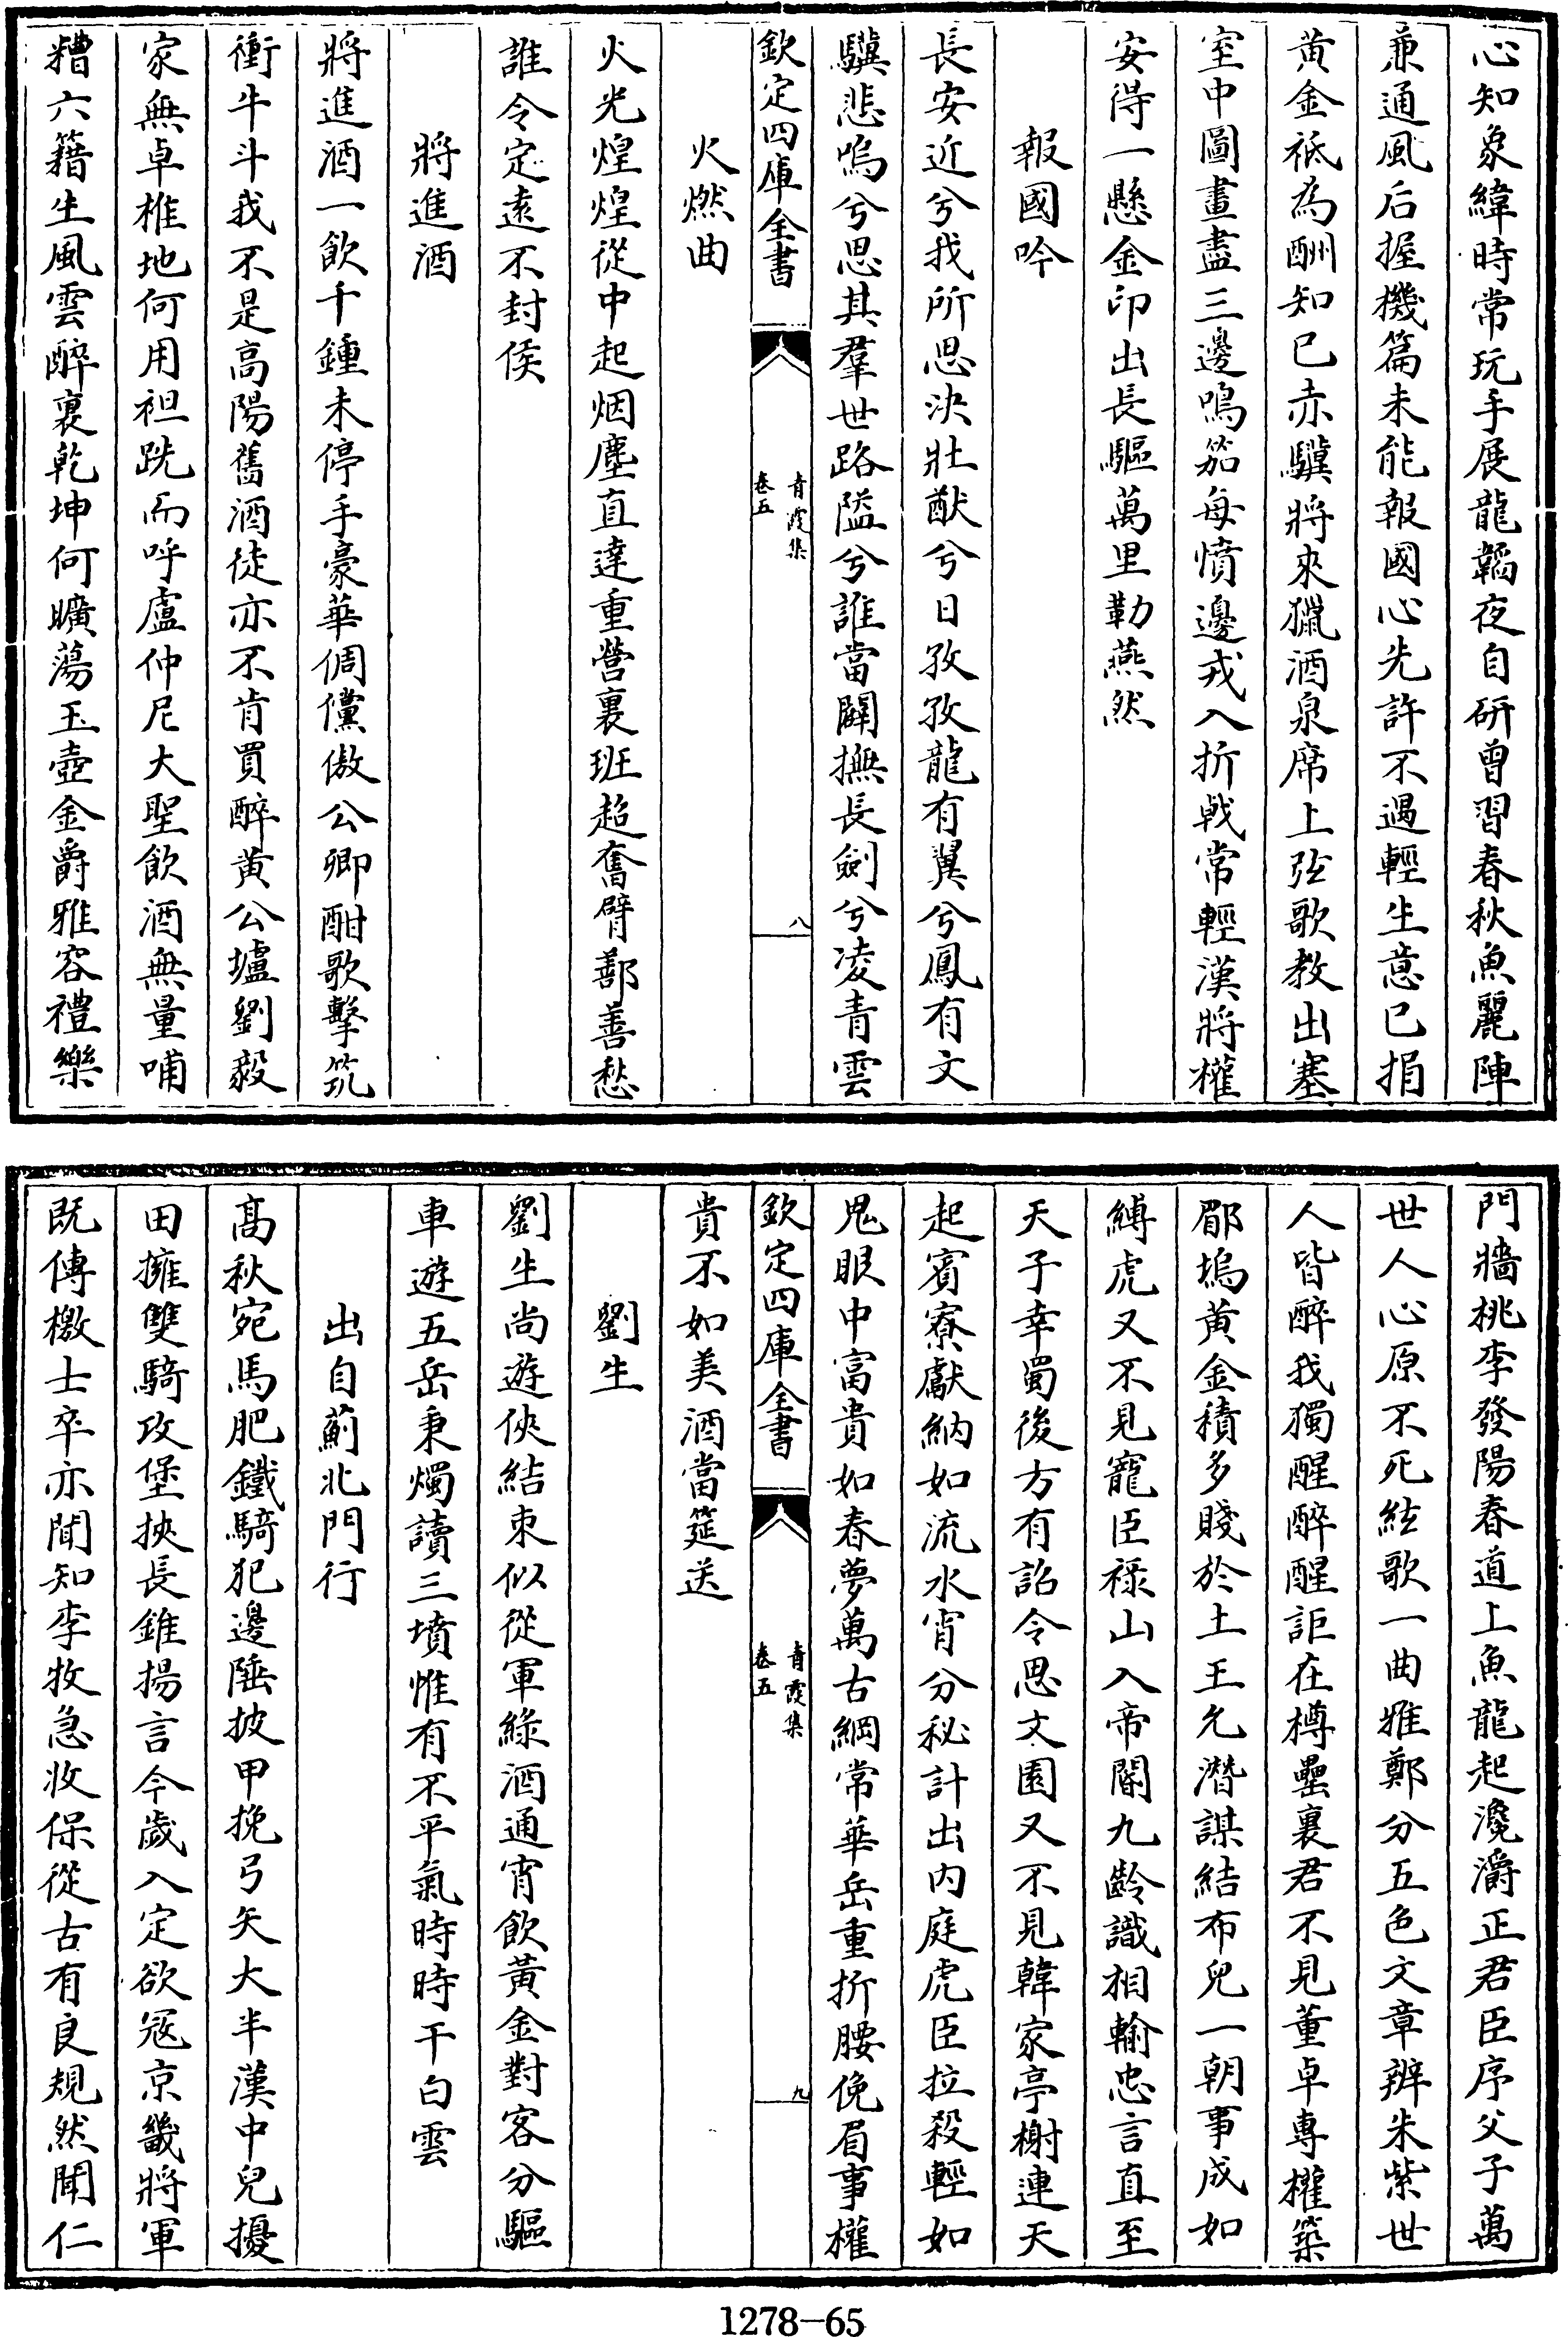 心知象緯時常玩手展龍韜夜自研曾習春秋魚麗陣
兼通風后握機篇未能報國心先許不遇輕生意已捐
黃金祗為酬知已赤驥將來獵酒泉席上弦歌教出塞
室中圖畫盡三邊鳴笳每憤邊戎入折戟常輕漢將權
安得一懸金印出長驅萬里勒燕然
報國吟
長安近兮我所思決壯猷兮日孜孜龍有翼兮鳳有文
驥悲鳴兮思其羣世路隘兮誰當闢撫長劍兮凌青雲
欽定四庫全書
青霞集
卷五
八
火燃曲
火光煌煌從中起烟塵直達重營裏班超奮臂鄯善愁
誰令定遠不封侯
將進酒
將進酒一飲千鍾未停手豪華倜儻傲公卿酣歌擊筑
衝牛斗我不是高陽舊酒徒亦不肯買醉黃公壚劉毅
家無卓椎地何用袒跣而呼盧仲尼大聖飲酒無量哺
糟六籍生風雲醉裏乾坤何曠蕩玉壺金爵雅容禮樂
門牆桃李發陽春道上魚龍起瀺灂正君臣序父子萬
世人心原不死絃歌一曲雅鄭分五色文章辨朱紫世
人皆醉我獨醒醉醒詎在樽罍裏君不見董卓專權築
郿塢黃金積多賤於土王允潛謀結布兒一朝事成如
縛虎又不見寵臣祿山入帝閽九齡識相輸忠言直至
天子幸蜀後方有詔令思文園又不見韓家亭榭連天
起賓寮獻納如流水宵分秘計出內庭虎臣拉殺輕如
鬼眼中富貴如春夢萬古綱常華岳重折腰俛眉事權
欽定四庫全書
青霞集
卷五
九
貴不如美酒當筵送
劉生
劉生尚遊俠結束似從軍綠酒通宵飲黃金對客分驅
車遊五岳秉燭讀三墳惟有不平氣時時干白雲
出自薊北門行
高秋宛馬肥鐵騎犯邊陲披甲挽弓矢大半漢中兒擾
田擁雙騎攻堡挾長錐揚言今歲入定欲冦京畿將軍
既傳檄士卒亦聞知李牧急收保從古有良規然聞仁
1278-65